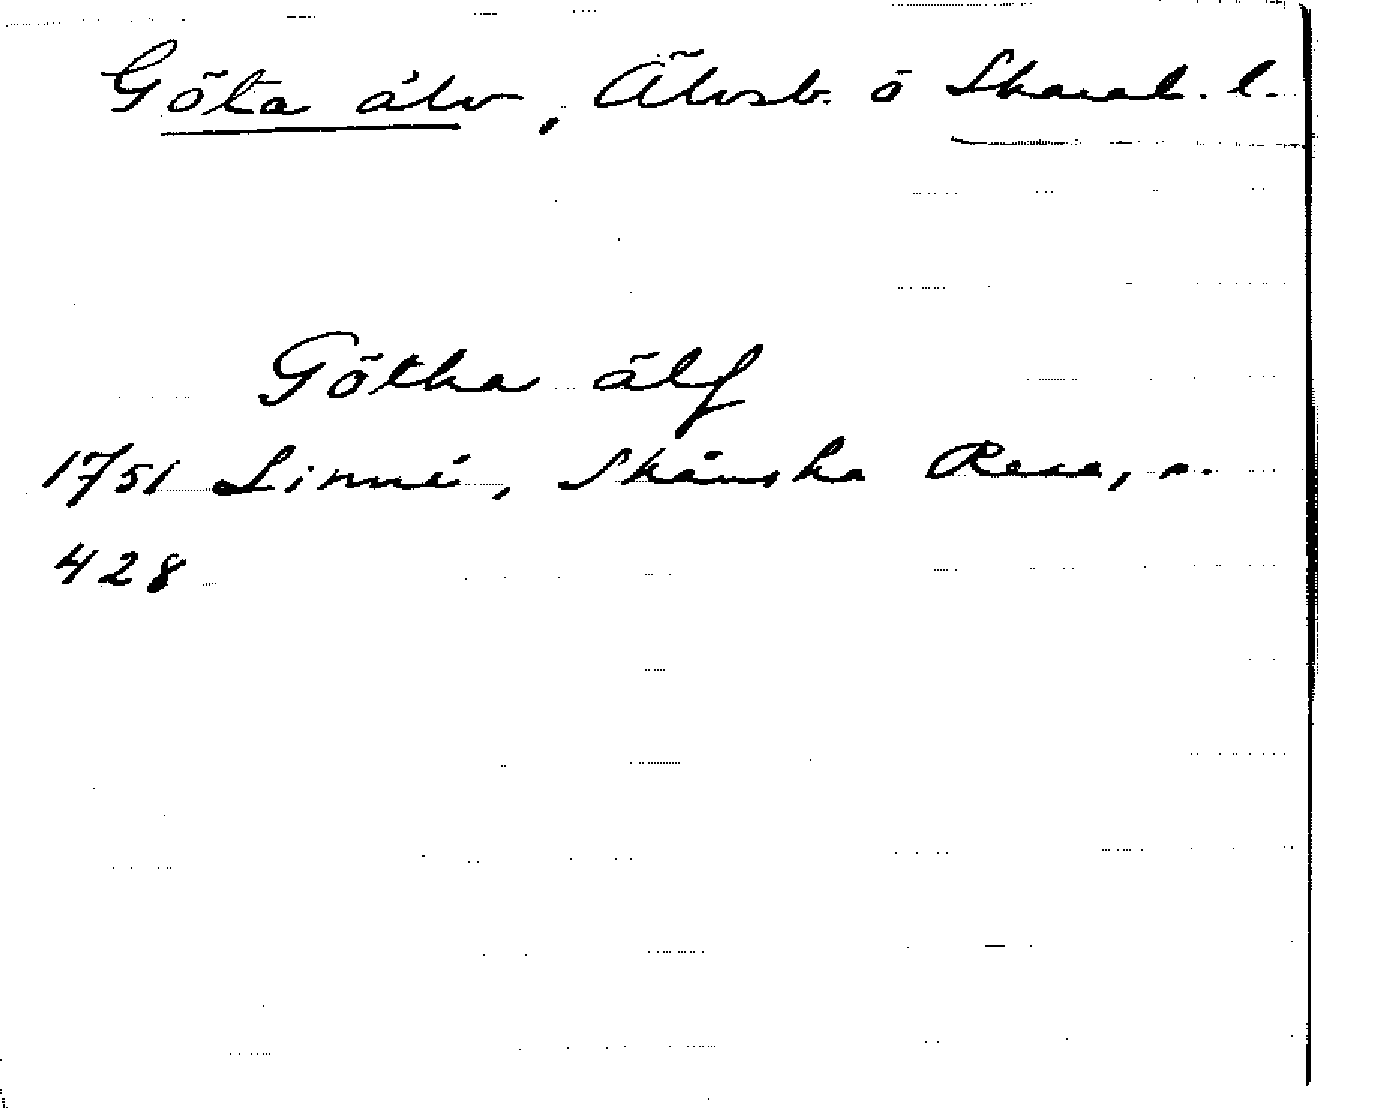 Göta älv, Älvsb. o Skarab. l.
Götha älf
1751 Linné, Skånska Resa, s.
428